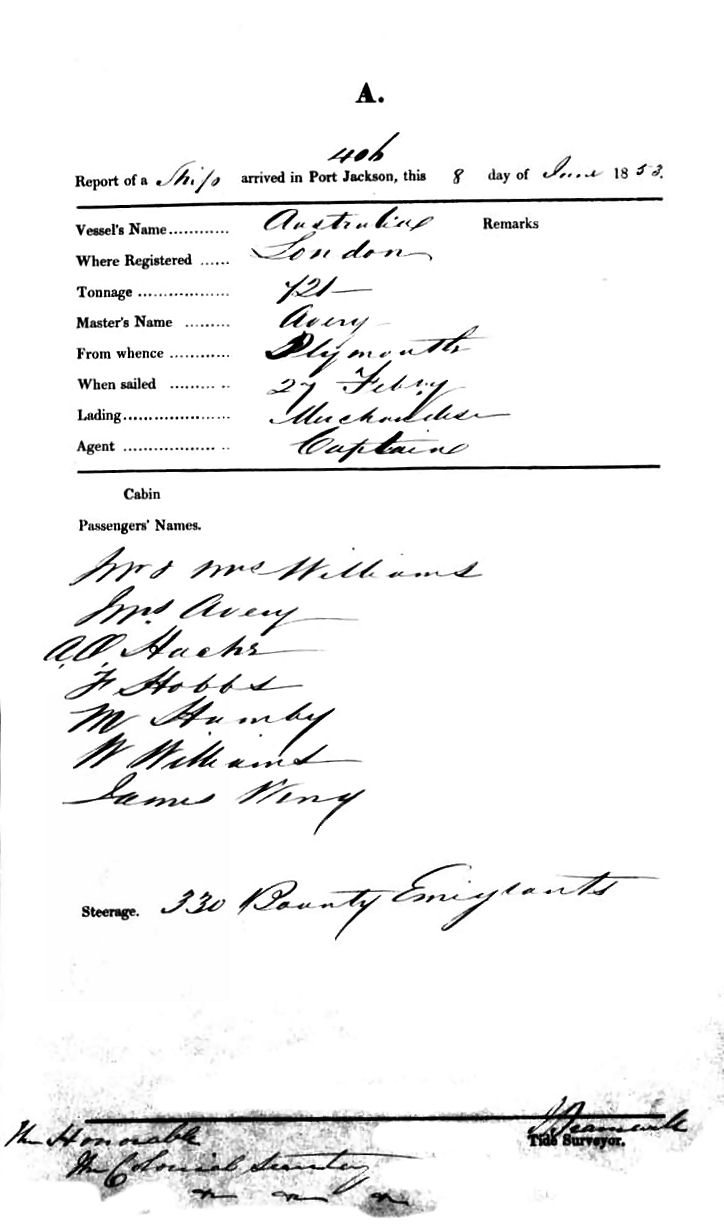 A.
406
Report of a Ship arrived in Port Jackson, this 8 day of June 1853.
Vessel's Name............ Australia Remarks
Where Registered ...... London
Tonnage .................. 721
Master's Name ......... Avery
From whence ............ Plymouth
When sailed ......... .. 27 Febry
Lading..................... Merchandise
Agent .................. .. Captain
Cabin
Passengers' Names.
Mr & Mrs Williams
Mrs Avery
F Hobbs
M Hamby
W Williams
James
Steerage. 330 Bounty Emigrants
Tide Surveyor.
The Honorable
The Colonial Secretary